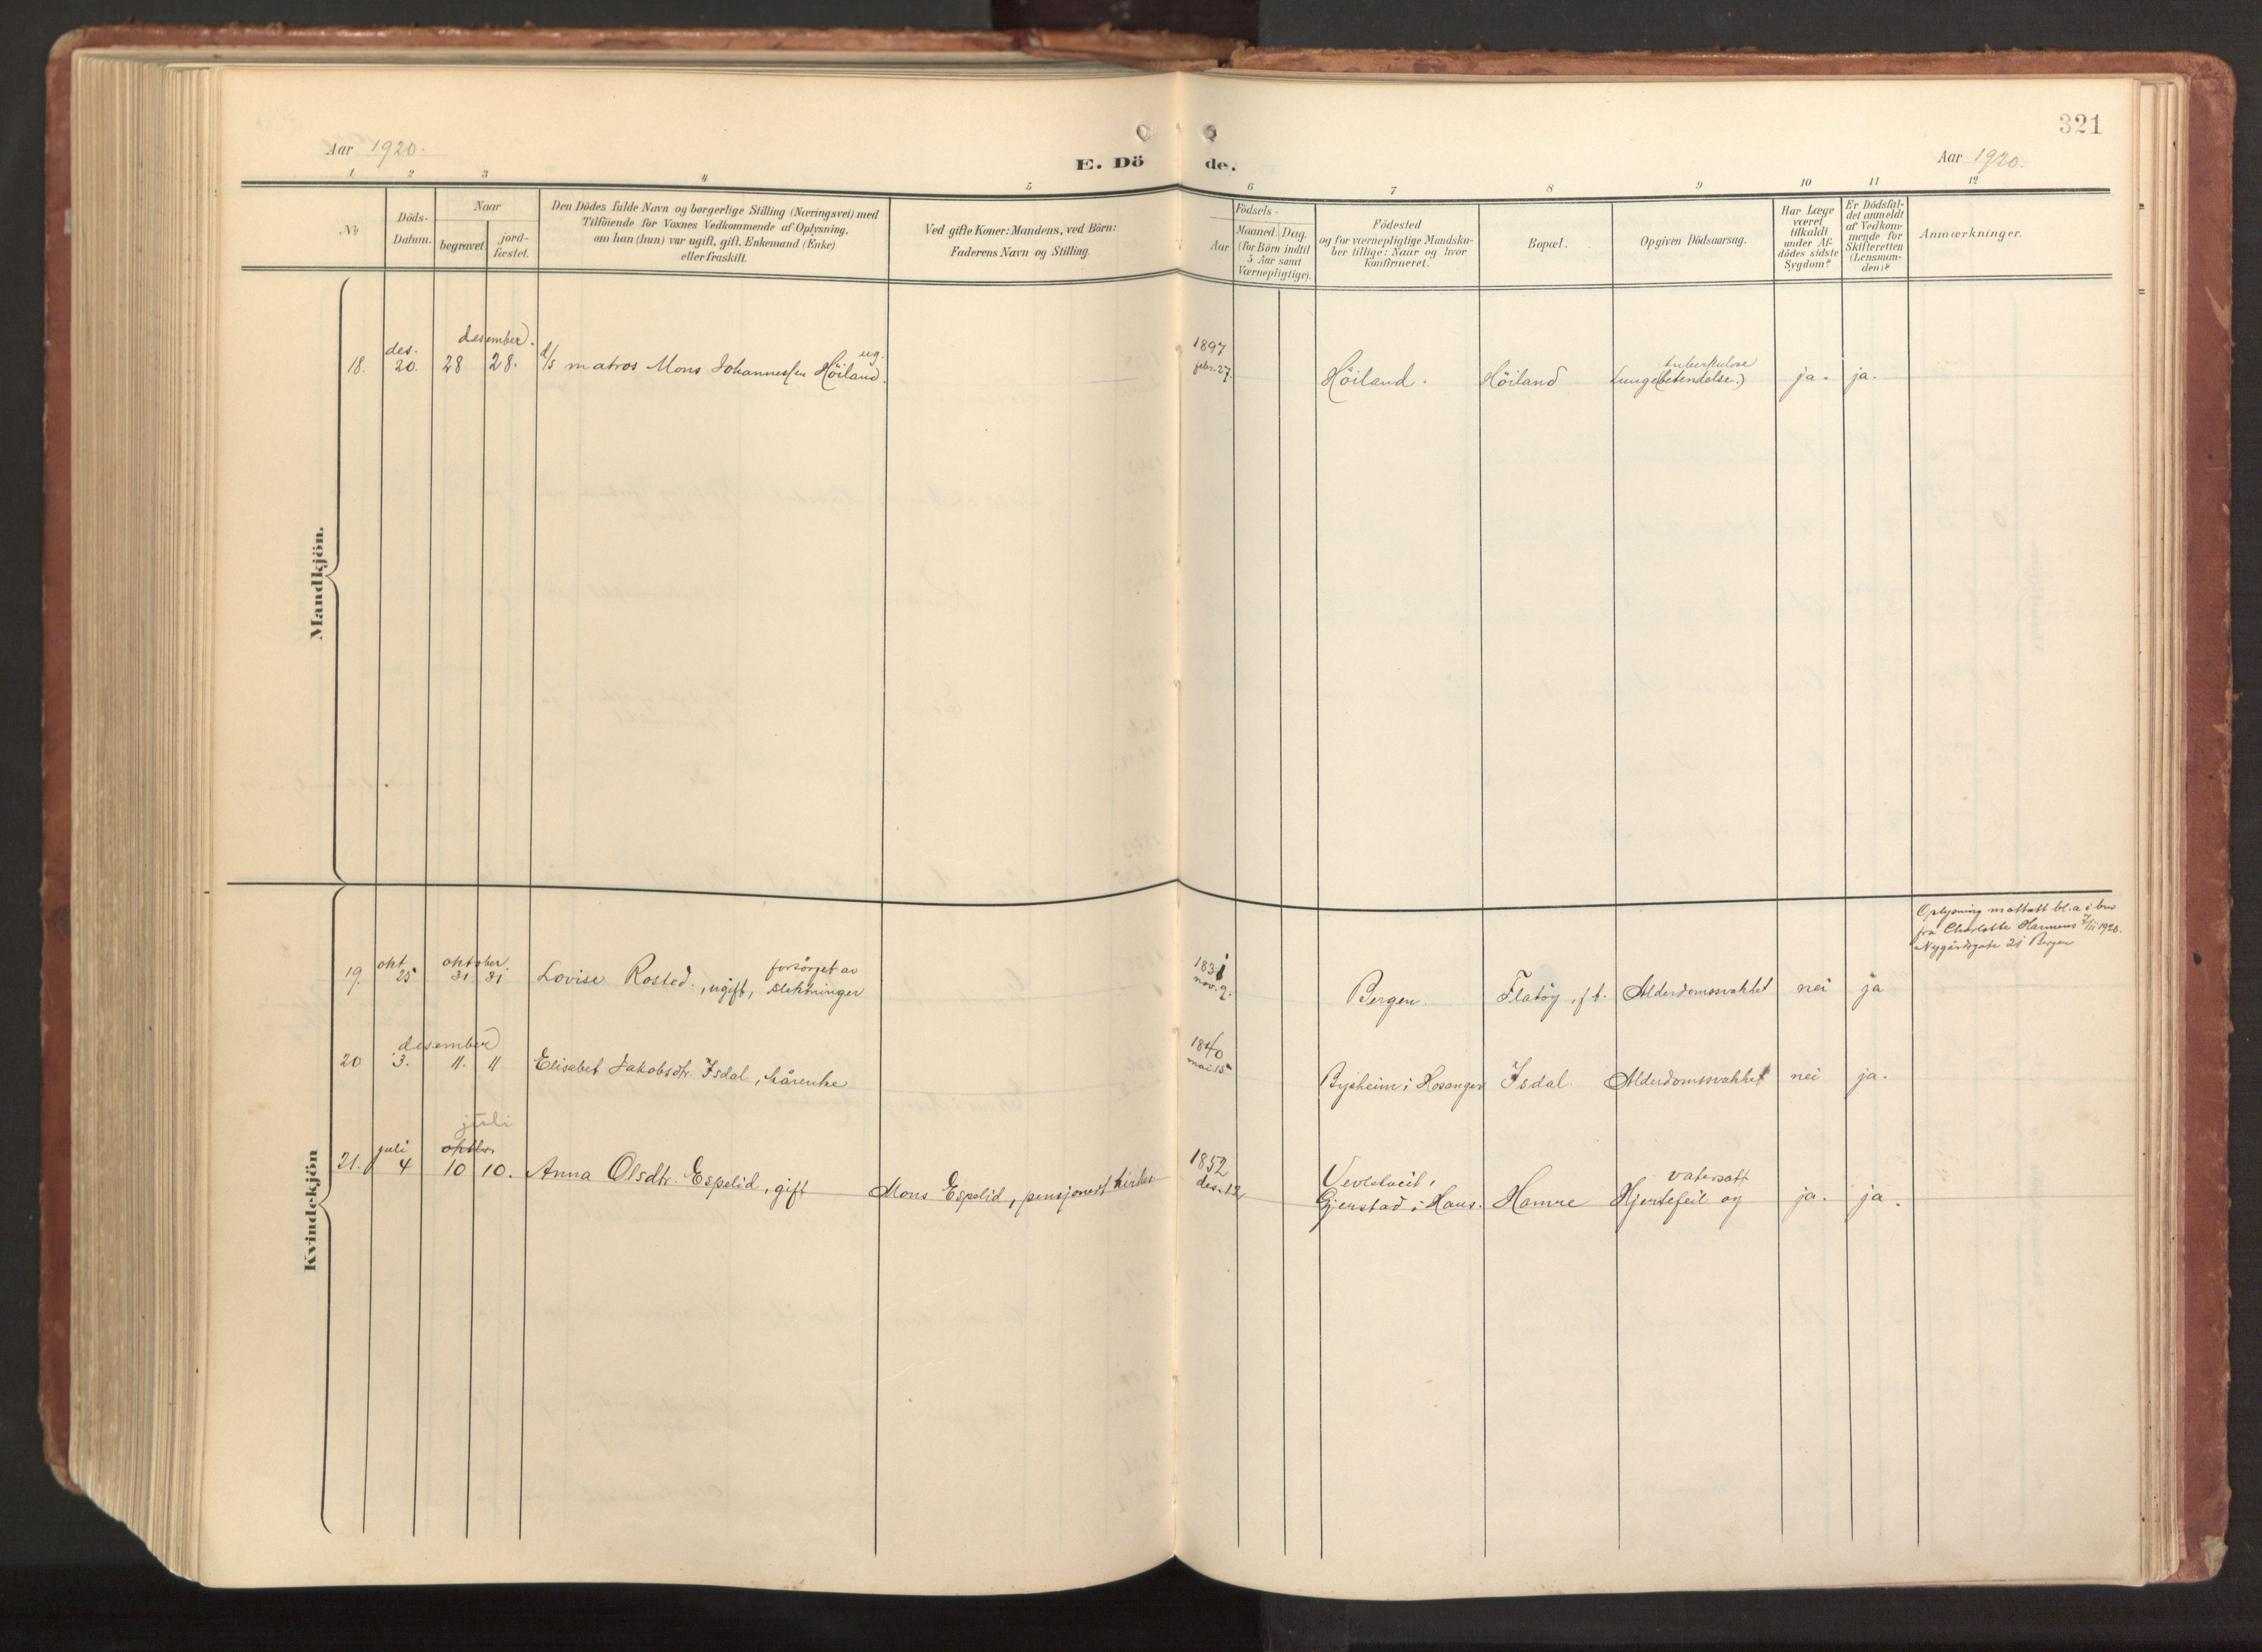 321
Aar 1920.
E. Dö de.
Aar 1920.
1 2 3 4 5 6 7 8 9 10 11 12
No
Döds-
Datum.
Naar
begravet.
jord-
fæstet.
Den Dödes fulde Navn og borgerlige Stilling (Næringsvei) med
Tilföiende for Voxnes Vedkommende af Oplysning,
om han (hun) var ugift, gift, Enkemand (Enke)
eller fraskilt.
Ved gifte Koner: Mandens, ved Börn:
Faderens Navn og Stilling.
Födsels-
Aar
Maaned. Dag.
(for Börn indtil
5 Aar samt
Værnepligtige).
Födested
og for værnepligtige Mandska-
ber tillige: Naar og hvor
konfirmeret.
Bopæl.
Opgiven Dödsaarsag.
Har Læge
været
tilkaldt
under Af-
dödes sidste
Sygdom?
Er Dödsfal-
det anmeldt
af Vedkom-
mende for
Skifteretten
(Lensman-
den)?
Anmærkninger.
Mandkjön.
desember.
18. des. 20. 28 28. d/s matros Mons Johannessen Höiland. ug.
1897
febr. 27.
Höiland. Höiland
tuberkulose
Lungebetendelse.) ja. ja.
Kvindekjön
Oplysning mottatt bl.a. i brev
fra Charlotte Hammens 7/11 1920.
Nygårdsgate 21 Bergen
oktober
19. okt 25 31. 31 Lovise Rosted, ugift, forsörget av
slektninger
1831
nov. 9.
Bergen. Flatöy, f.t. Alderdomssvakhet nei ja
desember
20 3. 11. 11 Elisabet Jakobsdtr. Isdal, kårenke
1840
mai 15
Bysheim i Hosanger Isdal. Alderdomssvakhet nei ja.
juli
oktbr.
21. juli 4 10 10. Anna Olsdtr. Espelid, gift Mons Espelid, pensjonert kirkes
1852
des. 12
Vevletveit,
Gjerstad i Haus. Hamre
vatersott
Hjertefeil og ja. ja.